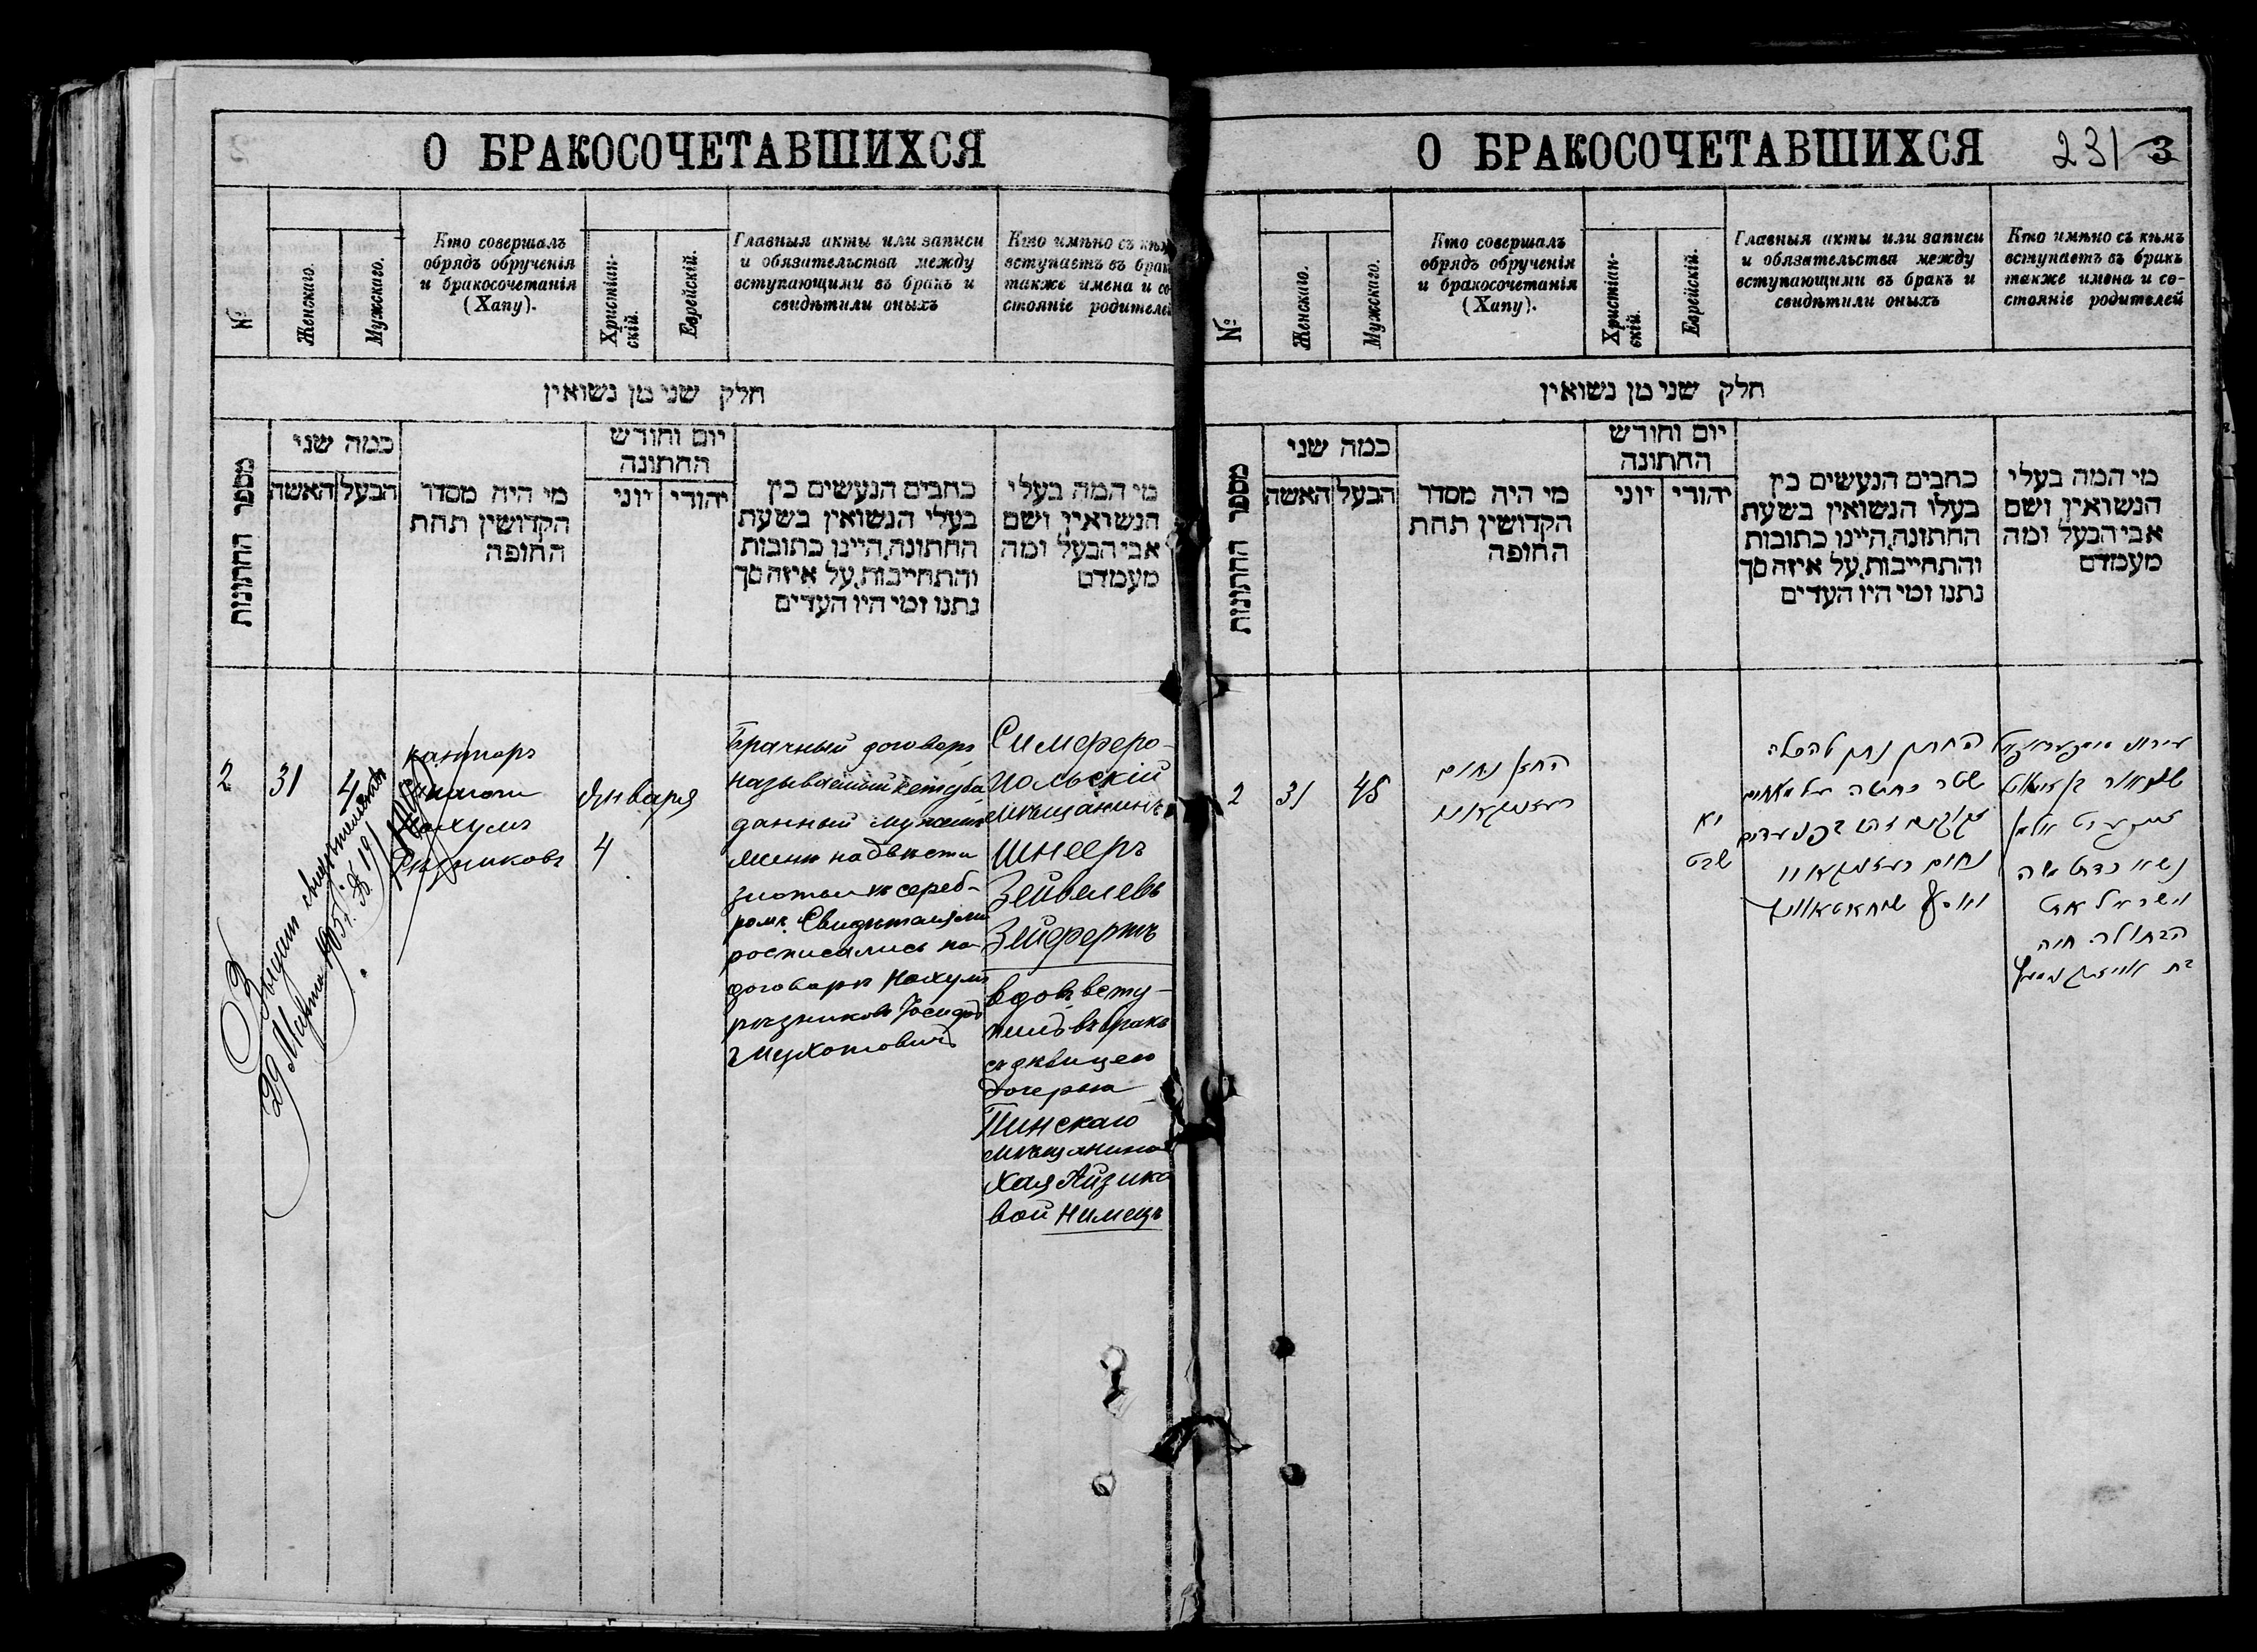 О БРАКОСОЧЕТАВШИХСЯ
№
Женскаго.
Мужскаго.
Кто совершалъ
обрядъ обрученія
и бракосочетанія
(Хапу).
Христіан-
скій.
Еврейскій.
Главныя акты или записи
и обязательства между
вступающими въ бракъ и
свидѣтили оныхъ
Кто имѣно съ кѣмъ
вступаетъ въ бракъ
также имена и со-
стояніе родителей
חלק שני מן נשואין
מספר החתונות
כמה שני
האשה
הבעל
מי היה מסדר
הקדושין תחת
החופה
יום וחודש
החתונה
יוני
יהודי
כתבים הנעשים בין
בעלי הנשואין בשעת
החתונה, היינו כתובות
והתחייבות, על איזה סך
נתנו ומי היו העדים
מי המה בעלי
הנשואין ושם
אבי הבעל ומה
מעמדם
2
31
4
канторъ
Нахумъ
Рѣзниковъ
Января
4
Брачный договоръ
называемый кетуба
данный мужемъ
жене на двѣсти
злотыхъ сереб-
ромъ. Свидѣтелями
росписались на
договорѣ Нахумъ
рѣзниковъ Іосифъ
Симферо-
польскій
мѣщанинъ
Шнееръ
Зейвелевъ
Зейфертъ
вдовъ всту-
пилъ въ бракъ
съ дѣвицею
дочерью
Пинскаго
мѣщанина
Хая Айзико
вой Нимецъ
29 Марта 1905 г. № 191
О БРАКОСОЧЕТАВШИХСЯ
231 3
№
Женскаго.
Мужскаго.
Кто совершалъ
обрядъ обрученія
и бракосочетанія
(Хапу).
Христіан-
скій.
Еврейскій.
Главныя акты или записи
и обязательства между
вступающими въ бракъ и
свидѣтили оныхъ
Кто имѣно съ кѣмъ
вступаетъ въ бракъ
также имена и со-
стояніе родителей
חלק שני מן נשואין
מספר החתונות
כמה שני
האשה
הבעל
מי היה מסדר
הקדושין תחת
החופה
יום וחודש
החתונה
יוני
יהודי
כתבים הנעשים בין
בעלו הנשואין בשעת
החתונה, היינו כתובות
והתחייבות, על איזה סך
נתנו ומי היו העדים
מי המה בעלי
הנשואין ושם
אבי הבעל ומה
מעמדם
2
31
45
החזן נחום
רעזניקאוו
יא
שבט
החתן נתן להכלה
שטר כתובה על מאתים
זקוקים
נחום רעזניקאוו
אלמן
נשא כדת משה
וישראל את
הבתולה חיה
בת אייזיק